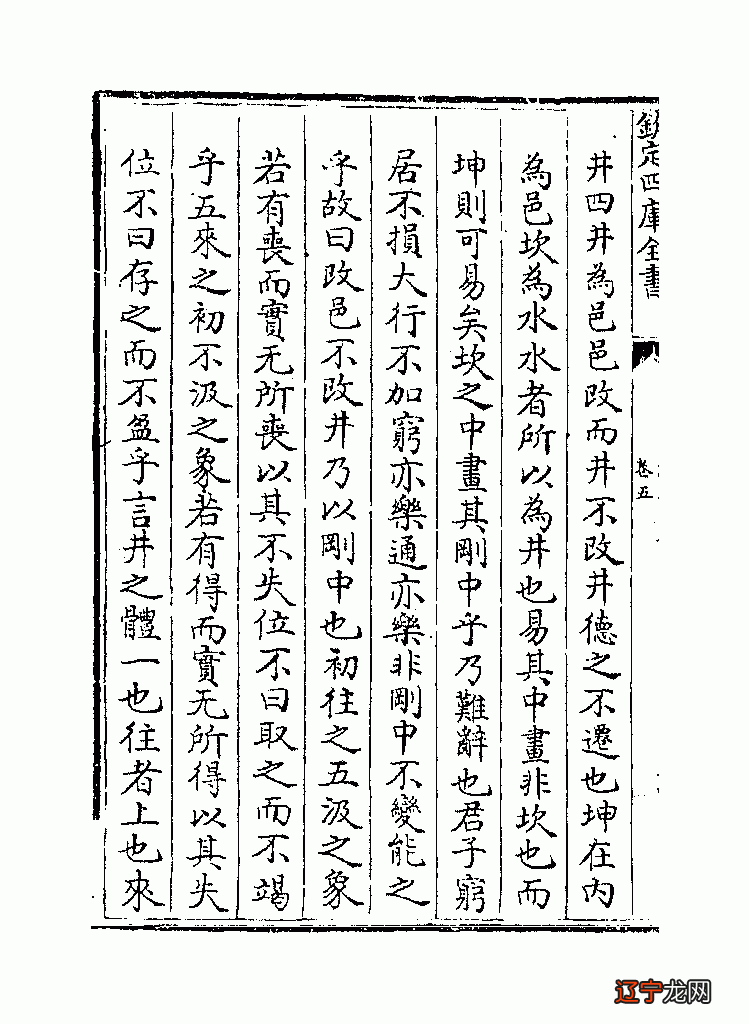 欽定四庫全書
卷五
井四井為邑邑改而井不改井德之不遷也坤在内
為邑坎為水水者所以為井也易其中畫非坎也而
坤則可易矣坎之中畫其剛中乎乃難辭也君子窮
居不損大行不加窮亦樂通亦樂非剛中不變能之
乎故曰改邑不改井乃以剛中也初往之五汲之象
若有喪而實无所喪以其不失位不曰取之而不竭
乎五來之初不汲之象若有得而實无所得以其失
位不曰存之而不盈乎言井之體一也往者上也來
辽宁龙网